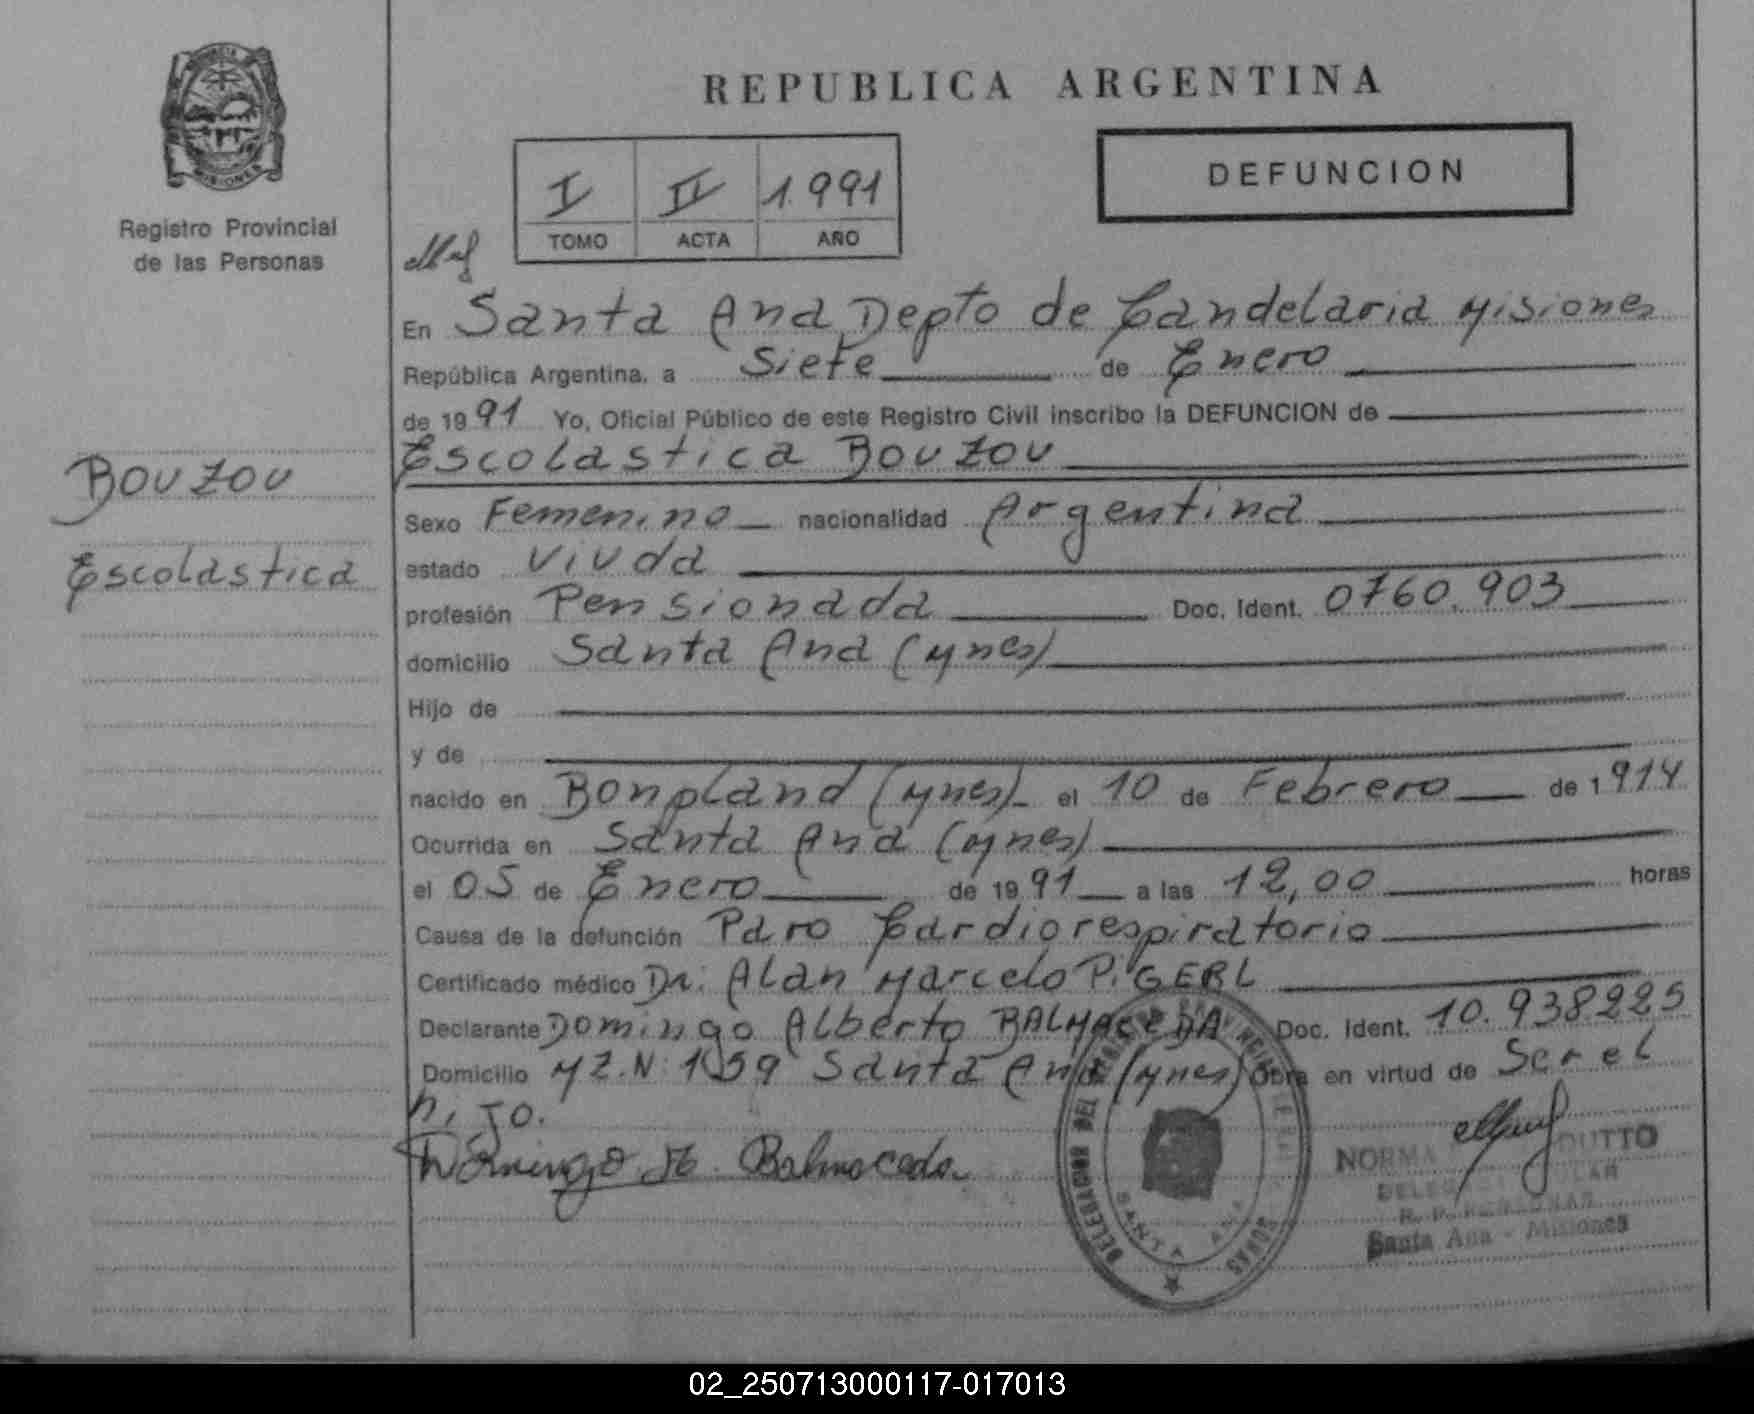 PROVINCIA DE
MISIONES
Registro Provincial
de las Personas
REPUBLICA ARGENTINA
DEFUNCION
I II 1.991
TOMO ACTA AÑO
En Santa Ana, Depto de Candelaria Misiones
República Argentina, a Siete de Enero
de 1991 Yo, Oficial Público de este Registro Civil inscribo la DEFUNCION de
Escolastica Bouzou
Bouzou
Escolastica
Sexo Femenino nacionalidad Argentina
estado Viuda
profesión Pensionada Doc. Ident. 0760.903
domicilio Santa Ana (Mnes)
Hijo de
y de
nacido en Bonpland (Mnes) el 10 de Febrero de 1914
Ocurrida en Santa Ana (Mnes)
el 05 de Enero de 1991 a las 12,00 horas
Causa de la defunción Paro Cardiorespiratorio
Certificado médico Dr. Alan Marcelo P. GERL
Declarante Domingo Alberto BALMACEDA Doc. Ident. 10.938225
Domicilio MZ.N: 159 Santa Ana (Mnes) Obra en virtud de Ser el
hijo.
Domingo A. Balmaceda
DELEGACION DEL REGISTRO PROVINCIAL DE LAS PERSONAS
SANTA ANA
NORMA DUTTO
R. P. PERSONAS
Santa Ana - Misiones
02_250713000117-017013